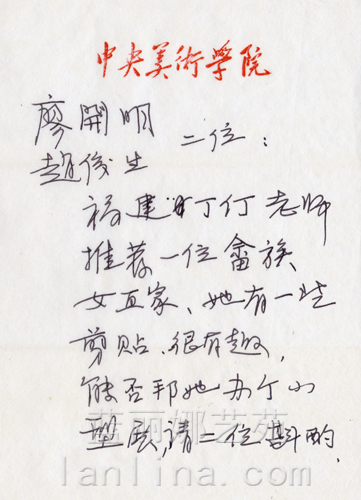 中央美術學院
廖開明
趙俊生 二位：
福建丁仃老师
推荐一位畲族
女画家、她有一些
剪贴、很有趣，
能否邦她办个小
型展，请二位斟酌.
蓝丽娜艺苑
lanlina.com